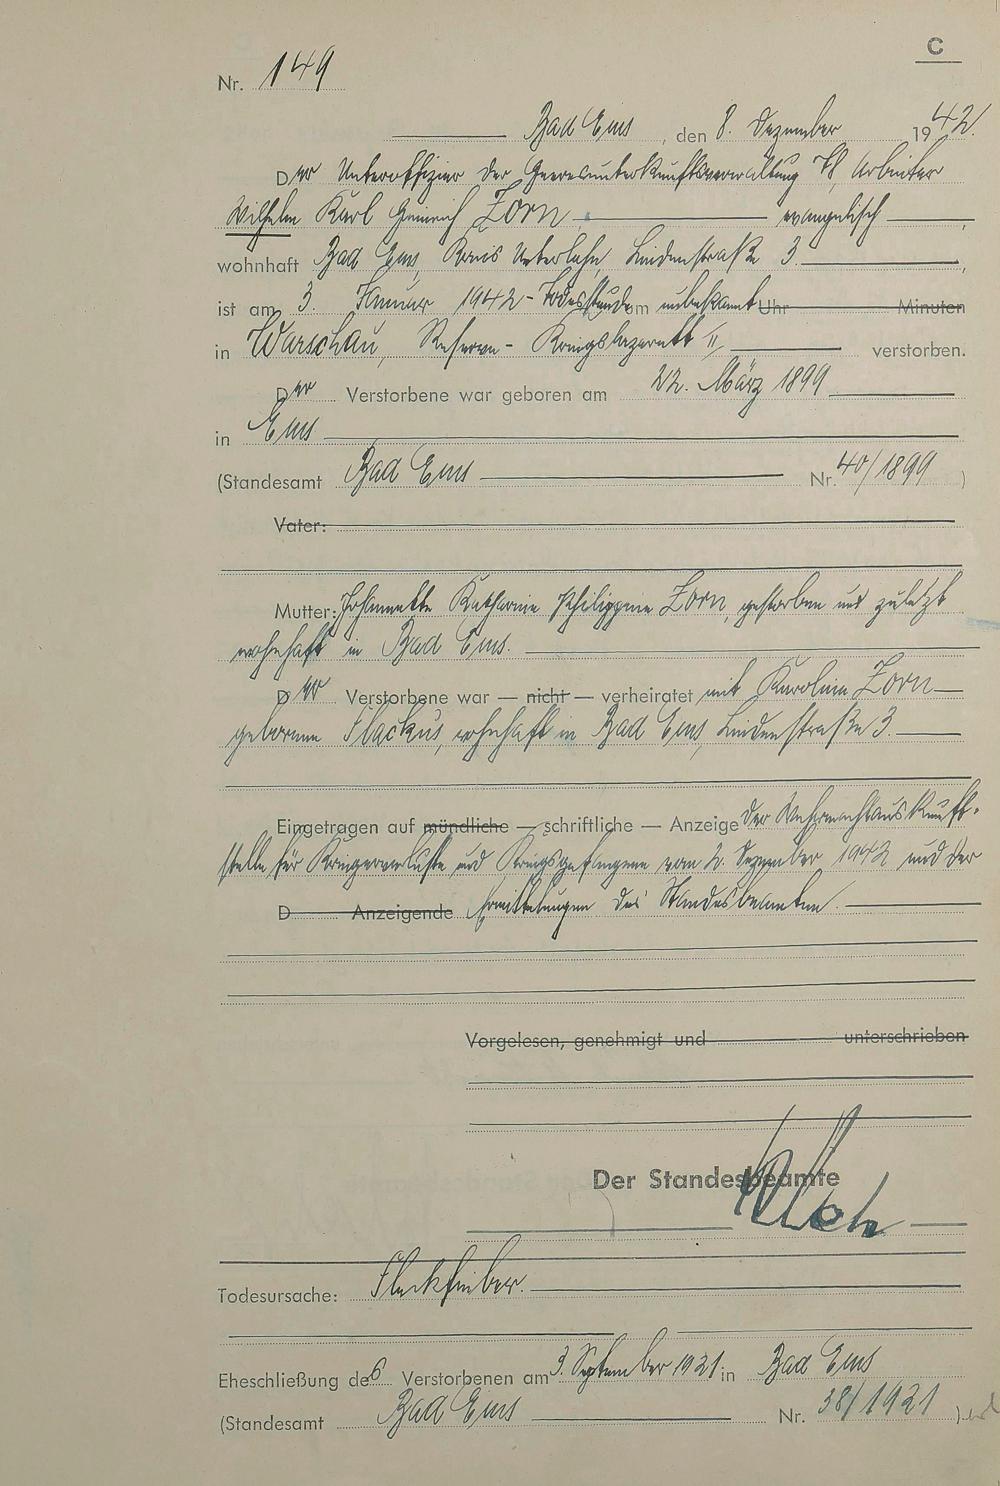 C
Nr. 149
Bad Ems, den 8. Dezember 1942.
Der Unteroffizier der Heeresunterkunftsverwaltung, Arbeiter
Wilhelm Karl Heinrich Zorn, evangelisch,
wohnhaft Bad Ems, Kreis Unterlahn, Lindenstraße 3.,
ist am 3. Januar 1942 - Todesstunde um unbekannt Uhr Minuten
in Warschau, Reserve-Kriegslazarett II, verstorben.
Der Verstorbene war geboren am 22. März 1899
in Ems
(Standesamt Bad Ems Nr. 40/1899)
Vater:
Mutter: Johannette Katharine Philippine Zorn, gestorben und zuletzt
wohnhaft in Bad Ems.
Der Verstorbene war — nicht — verheiratet mit Karoline Zorn
geborene Flackus, wohnhaft in Bad Ems, Lindenstraße 3.
Eingetragen auf mündliche — schriftliche — Anzeige der Wehrmachtauskunft-
stelle für Kriegerverluste und Kriegsgefangene vom 2. Dezember 1942 und der
D Anzeigende Ermittelungen des Standesbeamten.
Vorgelesen, genehmigt und unterschrieben
Der Standesbeamte
Todesursache: Fleckfieber.
Eheschließung des Verstorbenen am 3. September 1921 in Bad Ems
(Standesamt Bad Ems Nr. 38/1921)